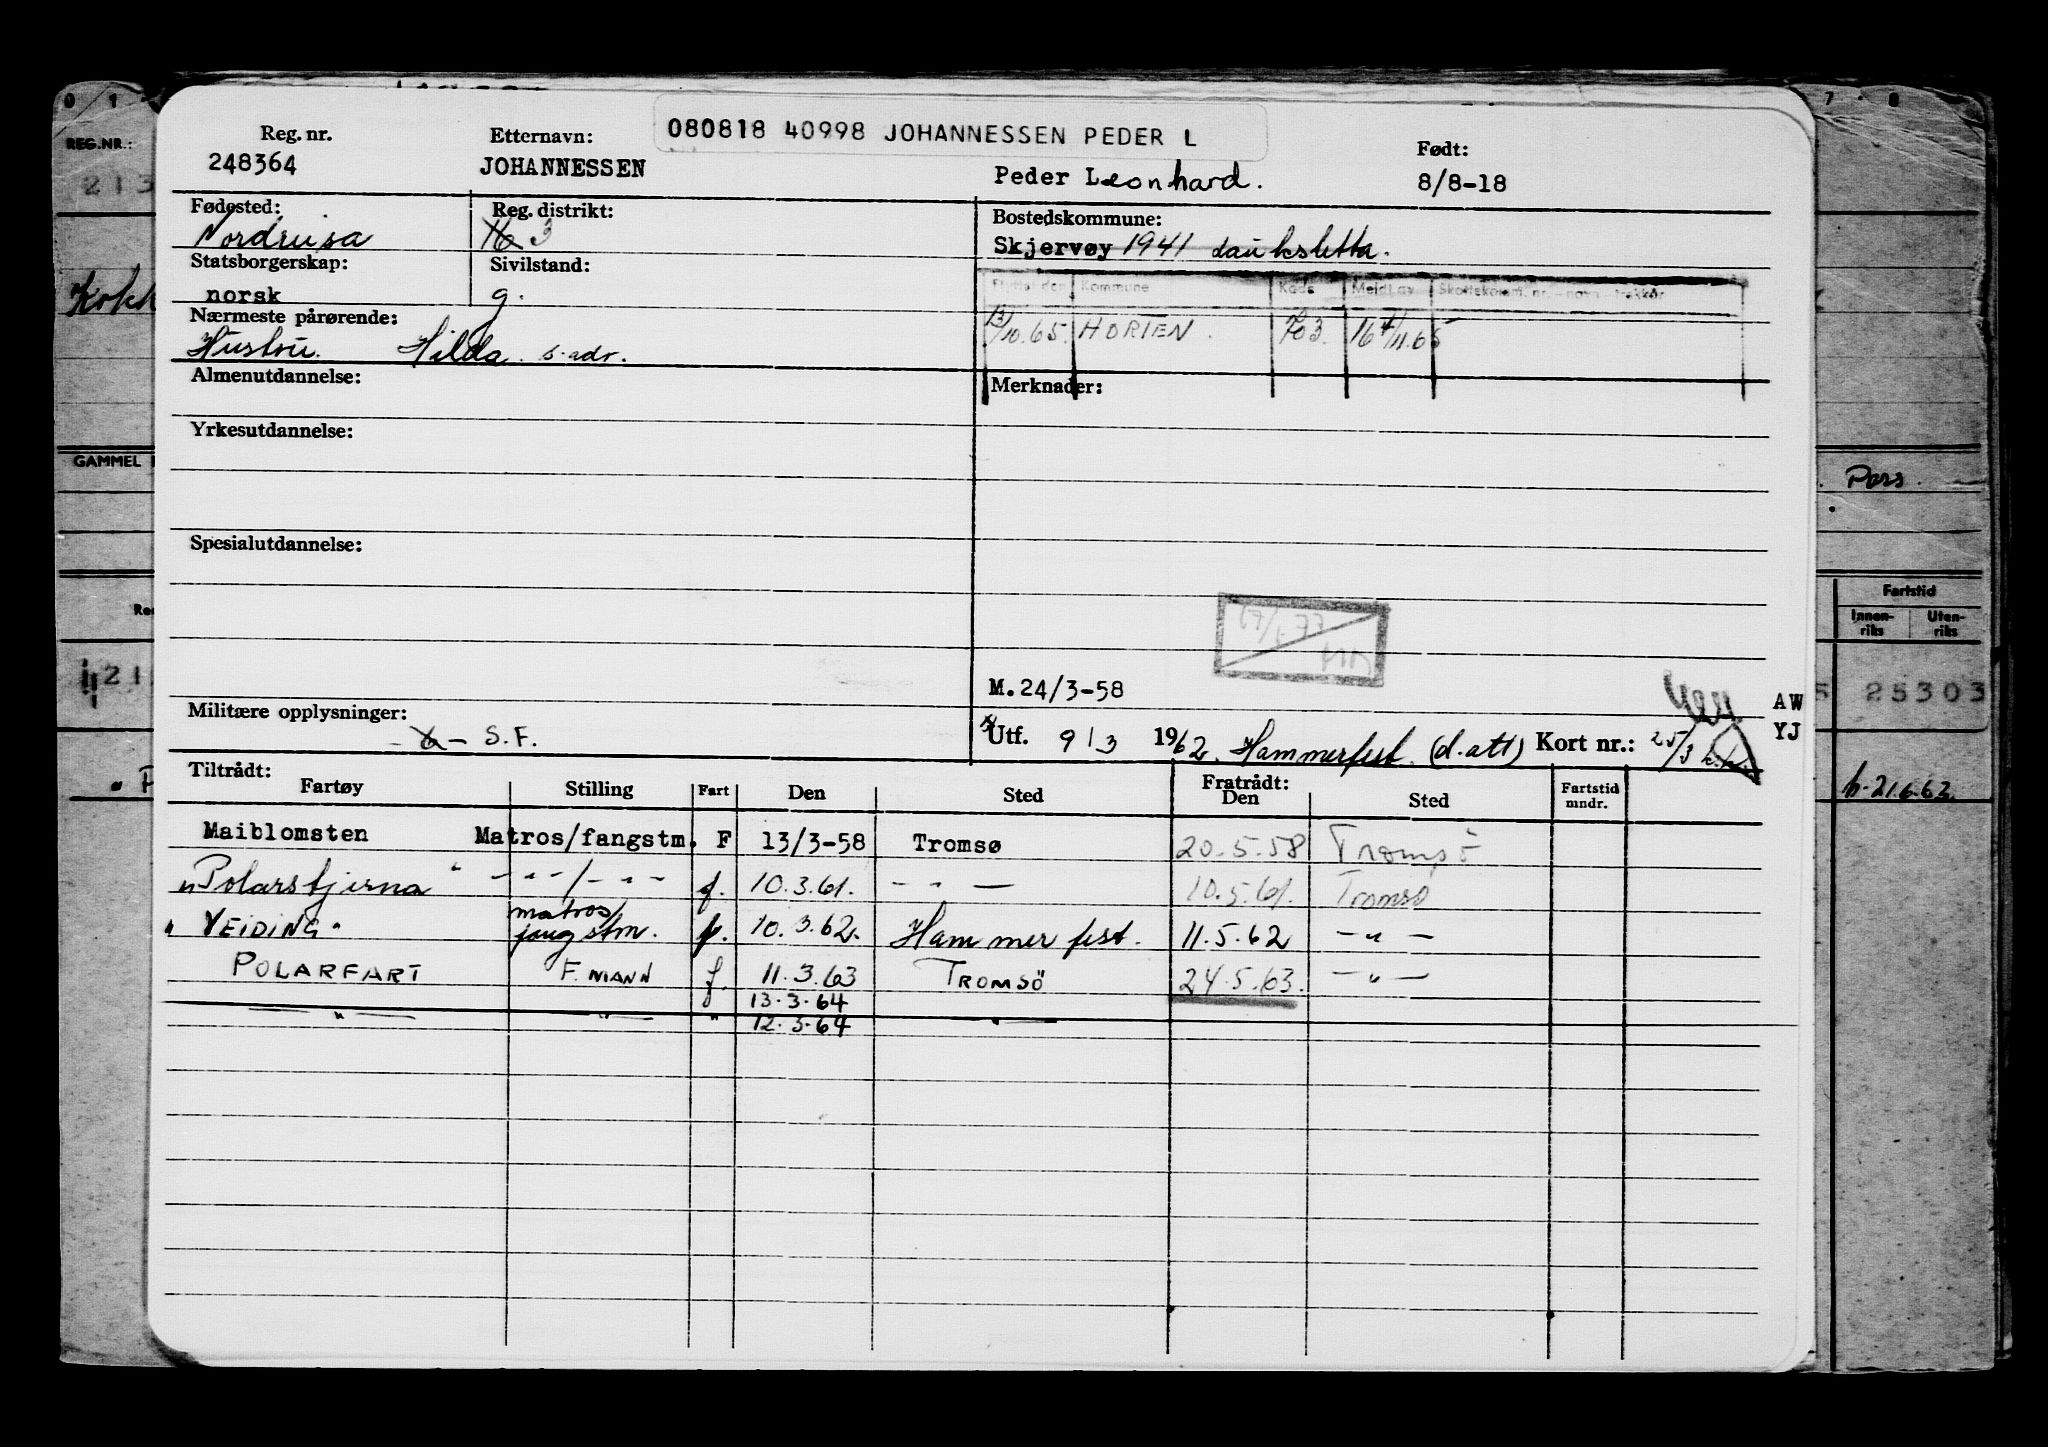 080818 40998 JOHANNESSEN PEDER L
Reg. nr. Etternavn: Født:
248364 JOHANNESSEN Peder Leonhard. 8/8-18
Fødested: Reg. distrikt: Bostedskommune:
Nordreisa 16 3 Skjervøy 1941 Lauksletta.
Statsborgerskap: Sivilstand:
norsk g.
Flyttet den Kommune Kode Meldt av
13/10.65. HORTEN. 703. 16 4/11.65
Nærmeste pårørende:
Hustru. Hilda. s. adr.
Almenutdannelse: Merknader:
Yrkesutdannelse:
Spesialutdannelse:
M.24/3-58
Militære opplysninger:
S.F.
Utf. 9/3 1962. Hammerfest. (d.att) Kort nr.: 25/3
AW
YJ
Tiltrådt: Fratrådt:
Fartøy Stilling Fart Den Sted Den Sted Fartstid mndr.
Maiblomsten Matros/fangstm. F 13/3-58 Tromsø 20.5.58 Tromsø
"Polarstjerna" - " - / - " - f. 10.3.61. - " - 10.5.61. Tromsø
"VEIDING" matros/fangstm. f. 10.3.62. Hammerfest. 11.5.62 - " -
POLARFART F.MANN f. 11.3.63 TROMSÖ 24.5.63. - " -
13.3.64
- " - - " - " 12.3.64 - " -
REG.NR.:
213
GAMMEL
Pers.
Fartstid
Innenriks Utenriks
25303
21.6.62.